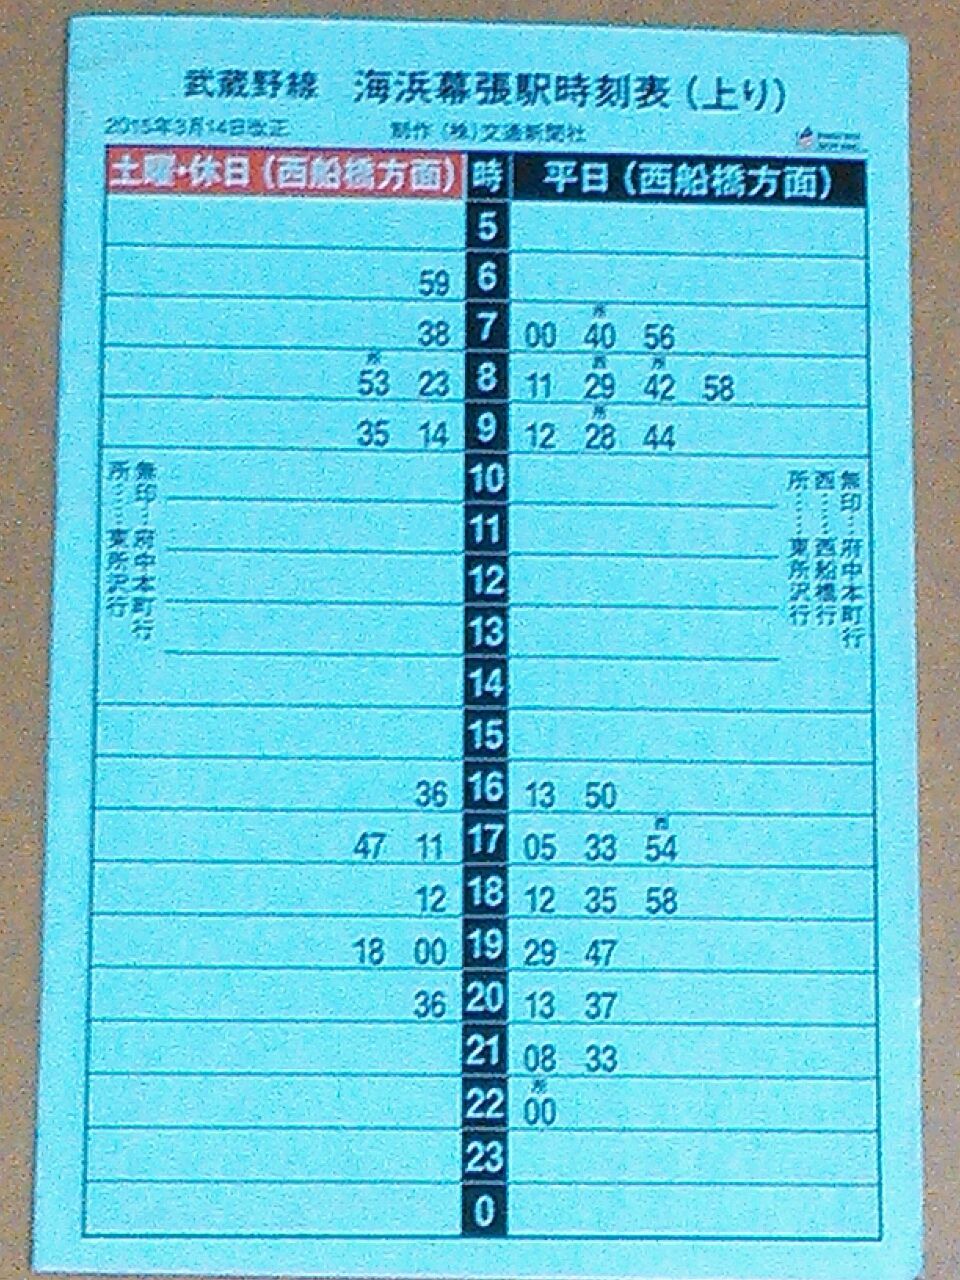 武蔵野線 海浜幕張駅時刻表(上り)
2015年3月14日改正 制作(株)交通新聞社
土曜・休日(西船橋方面) 時 平日(西船橋方面)
5
59 6
38 7 00 所40 56
所53 23 8 11 西29 所42 58
35 14 9 12 所28 44
10
11
12
13
14
15
36 16 13 50
47 11 17 05 33 西54
12 18 12 35 58
18 00 19 29 47
36 20 13 37
21 08 33
22 所00
23
0
無印…府中本町行
所……東所沢行
無印…府中本町行
西……西船橋行
所……東所沢行